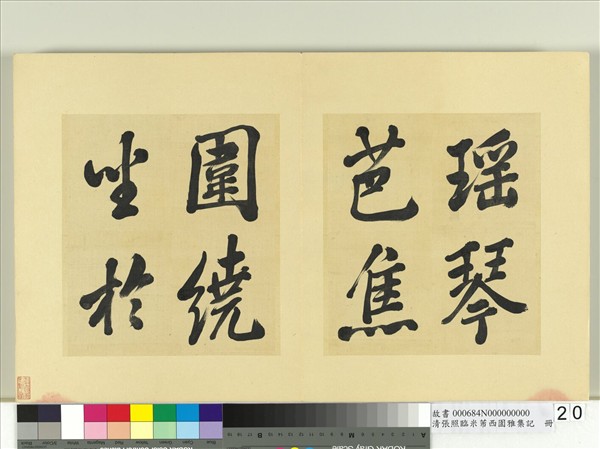 瑶琴
芭焦
圍繞
坐於
故書 000684N000000000
清張照臨米芾西園雅集記 冊
20
KODAK Gray Scale